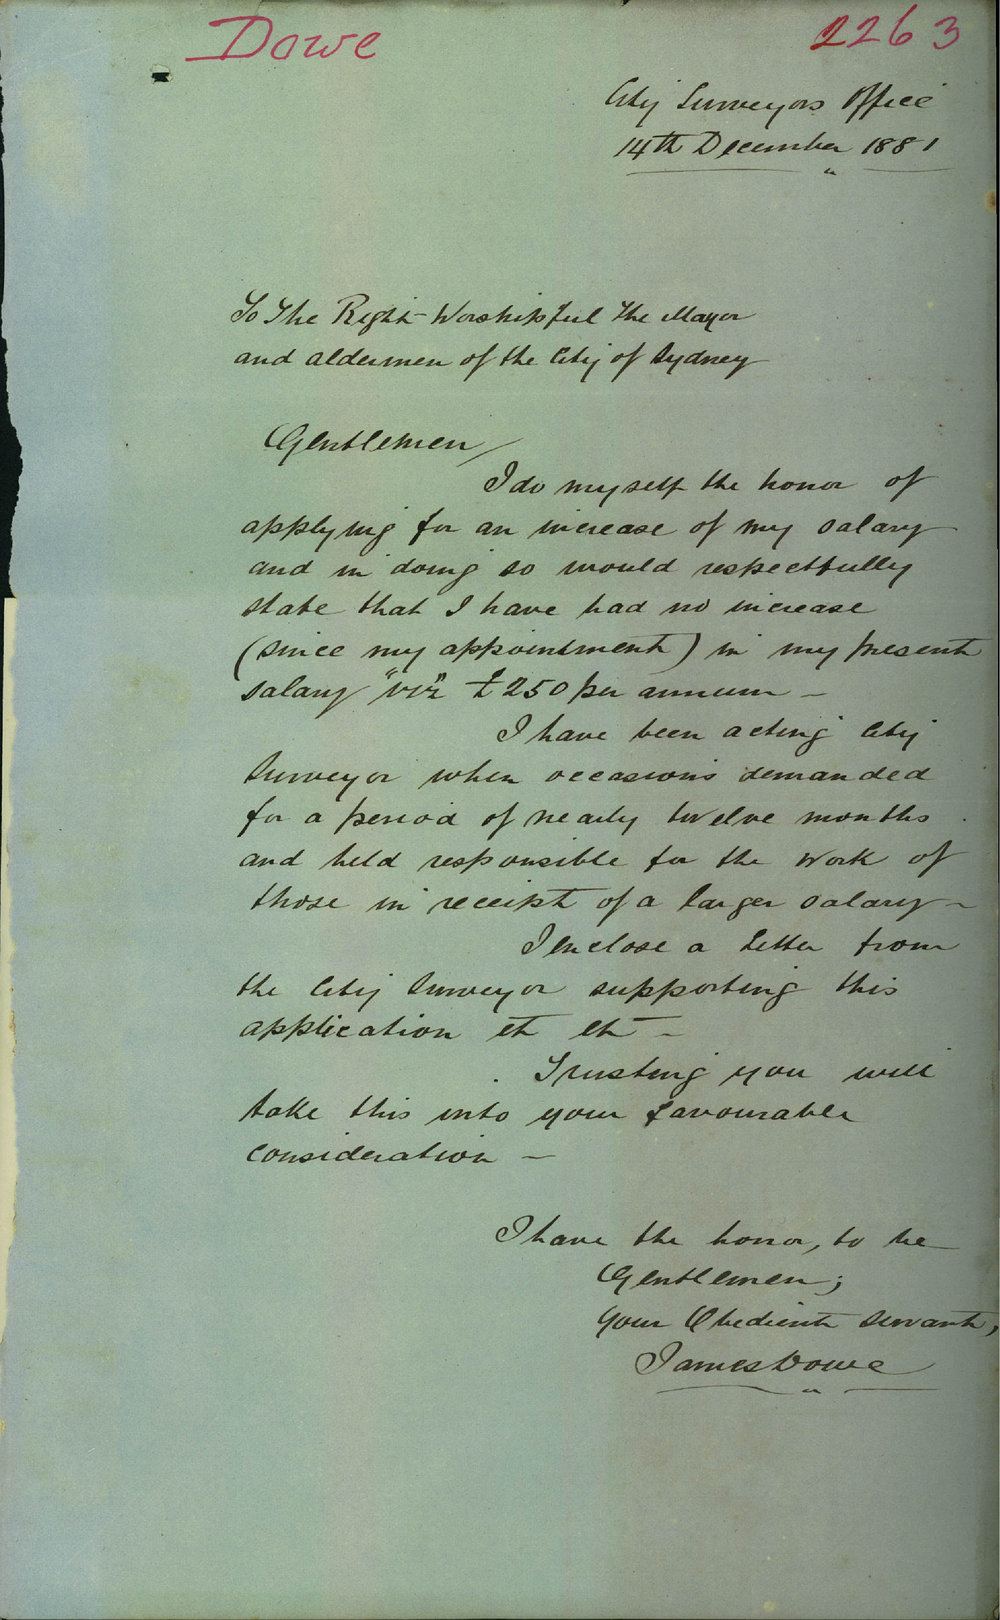 Dowe
2263
City Surveyors Office
14th December 1881
To The Right Worshipful The Mayor
and aldermen of the City of Sydney
Gentlemen
I do myself the honor of
applying for an increase of my salary
and in doing so would respectfully
state that I have had no increase
(since my appointment) in my present
salary "viz" £250 per annum –
I have been acting City
Surveyor when occasions demanded
for a period of nearly twelve months
and held responsible for the work of
those in receipt of a larger salary –
I enclose a letter from
the City Surveyor supporting this
application et et –
Trusting you will
take this into your favourable
consideration –
I have the honor, to be
Gentlemen;
Your Obedient servant,
James Dowe